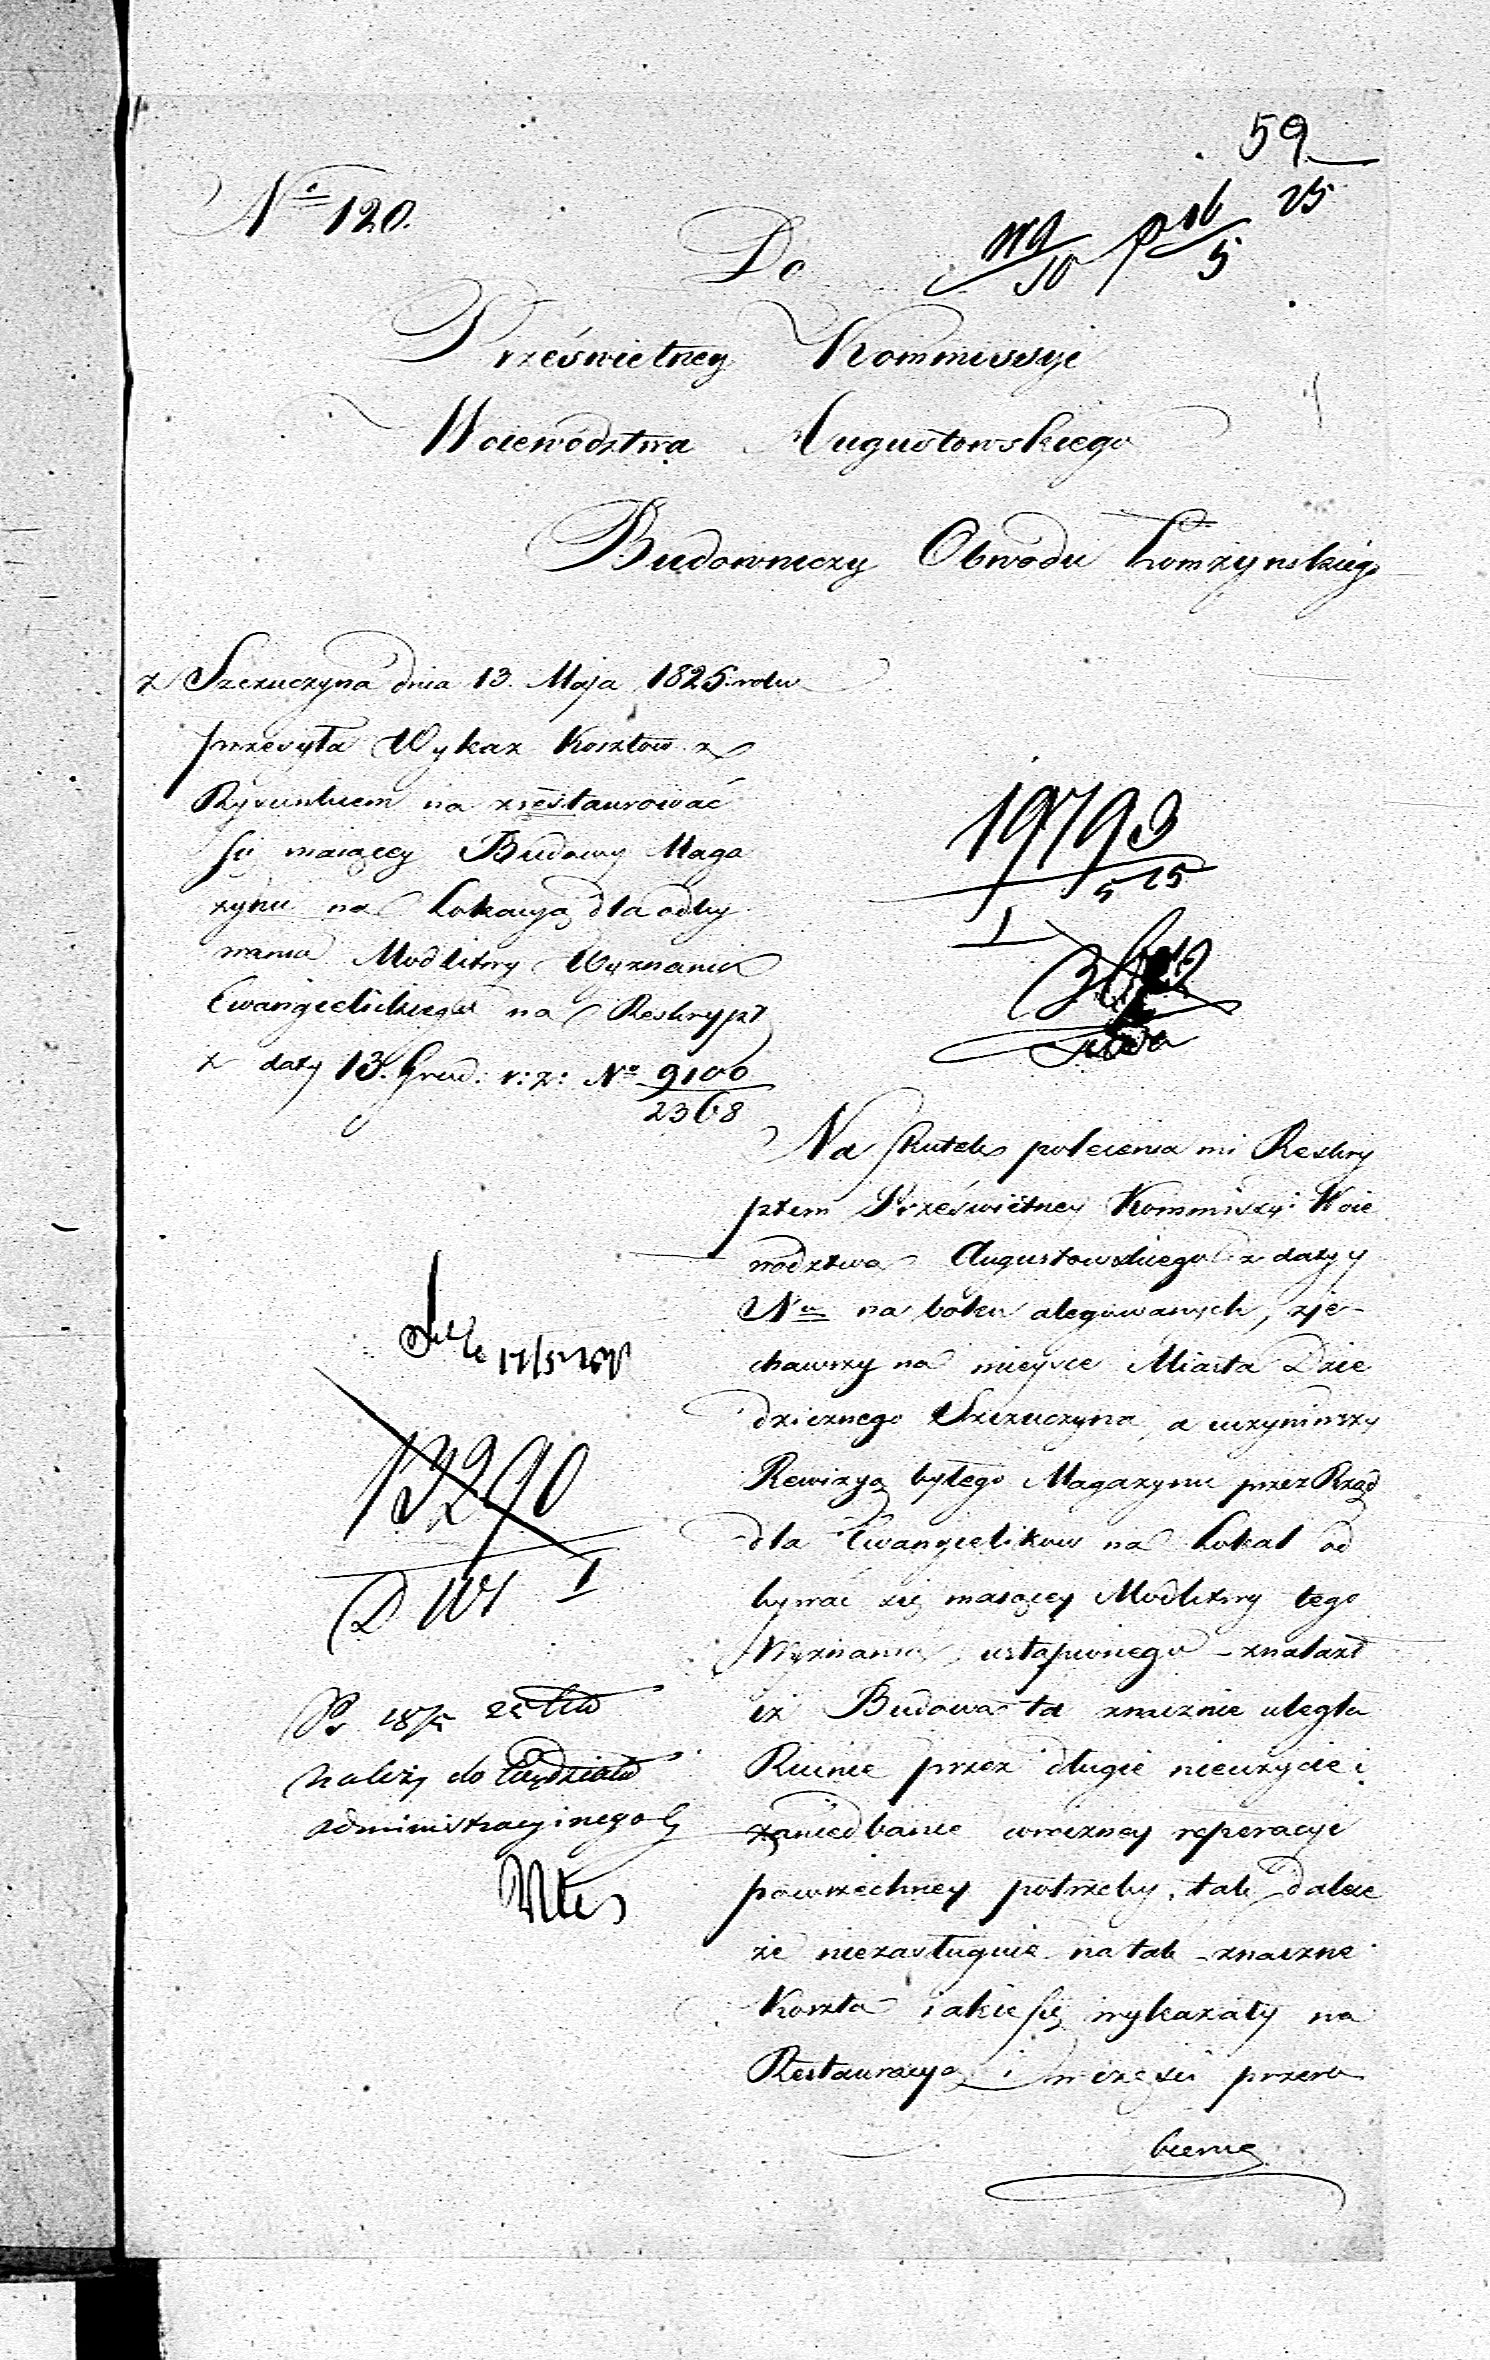 59
No 120.
25
Do
Prześwietney Kommissyi
Woiewództwa Augustowskiego
Budowniczy Obwodu Łomżynskiego
z Szczuczyna dnia 13. Maja 1825 roku
przesyła Wykaz Kosztow z
Rysunkiem na zrestaurować
się maiącey Budowy Maga
zynu na Lokacyą dla odby
wania Modlitwy Wyznania
Ewangelickiego na Reskrypt
z daty 13. Grud. r: z: No 9100
2368
19793
5 25
I
Na skutek polecenia mi Reskry
ptem Prześwietney Kommiszyi Woie
wodztwa Augustowskiego z daty y
Nru na boku alegowanych, zje-
chawszy na mieysce Miasta Dzie
dzicznego Szczuczyna, a uczyniwszy
Rewizyą byłego Magazynu przez Rząd
dla Ewangelikow na Lokal od
bywać się maiącey Modlitwy tego
Wyznania ustąpionego – znalazł
iż Budowa ta znacznie uległa
Ruinie przez długie nieużycie i
zaniedbanie wczesney reperacyi
powszechney potrzeby, tak dalece
że niezasługuie na tak znaczne
Koszta iakie się wykazały na
Restauracyą i wczęści przero
bienie
17/5
13290
D W I
należy do Wydziału
administracyinego